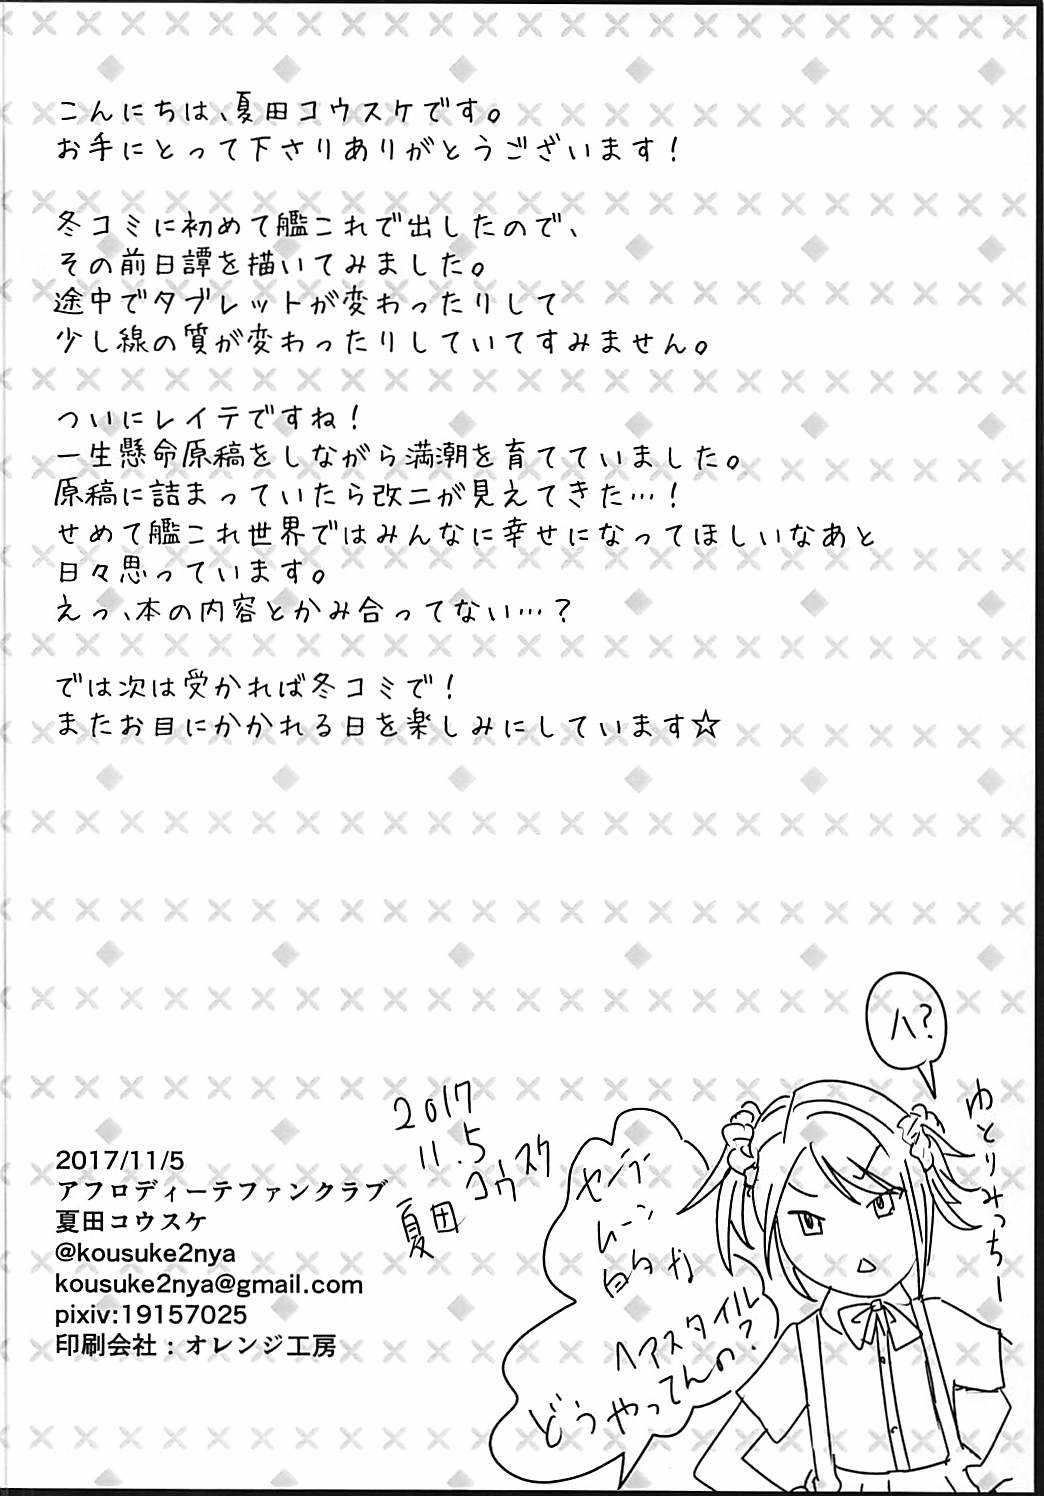 こんにちは、夏田コウスケです。
お手にとって下さりありがとうございます！
冬コミに初めて艦これで出したので、
その前日譚を描いてみました。
途中でタブレットが変わったりして
少し線の質が変わったりしていてすみません。
ついにレイテですね！
一生懸命原稿をしながら満潮を育てていました。
原稿に詰まっていたら改二が見えてきた…！
せめて艦これ世界ではみんなに幸せになってほしいなあと
日々思っています。
えっ、本の内容とかみ合ってない…？
では次は受かれば冬コミで！
またお目にかかれる日を楽しみにしています☆
ハ？
ゆとりみっちー
2017
11.5
夏田コウスケ
セーラー
ムーン
的な
ヘアスタイル
どうやってんの？
2017/11/5
アフロディーテファンクラブ
夏田コウスケ
@kousuke2nya
kousuke2nya@gmail.com
pixiv:19157025
印刷会社：オレンジ工房